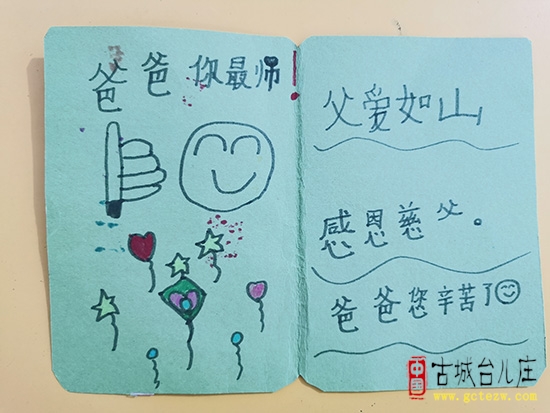 爸爸你最师!
父爱如山
感恩慈父。
爸爸您辛苦了
中国
古城台儿庄
www.gctezw.com